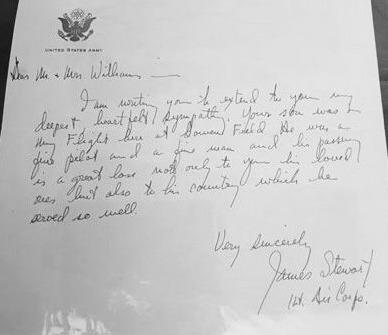 UNITED STATES ARMY
Dear Mr. & Mrs. Williams —
I am writing you to extend to you my
deepest heartfelt sympathy. Your son was in
my Flight here at Gowen Field. He was a
fine pilot and a fine man and his passing
is a great loss not only to you his loved
ones but also to his country which he
served so well.
Very sincerely
James Stewart
1st Lt. Air Corps.